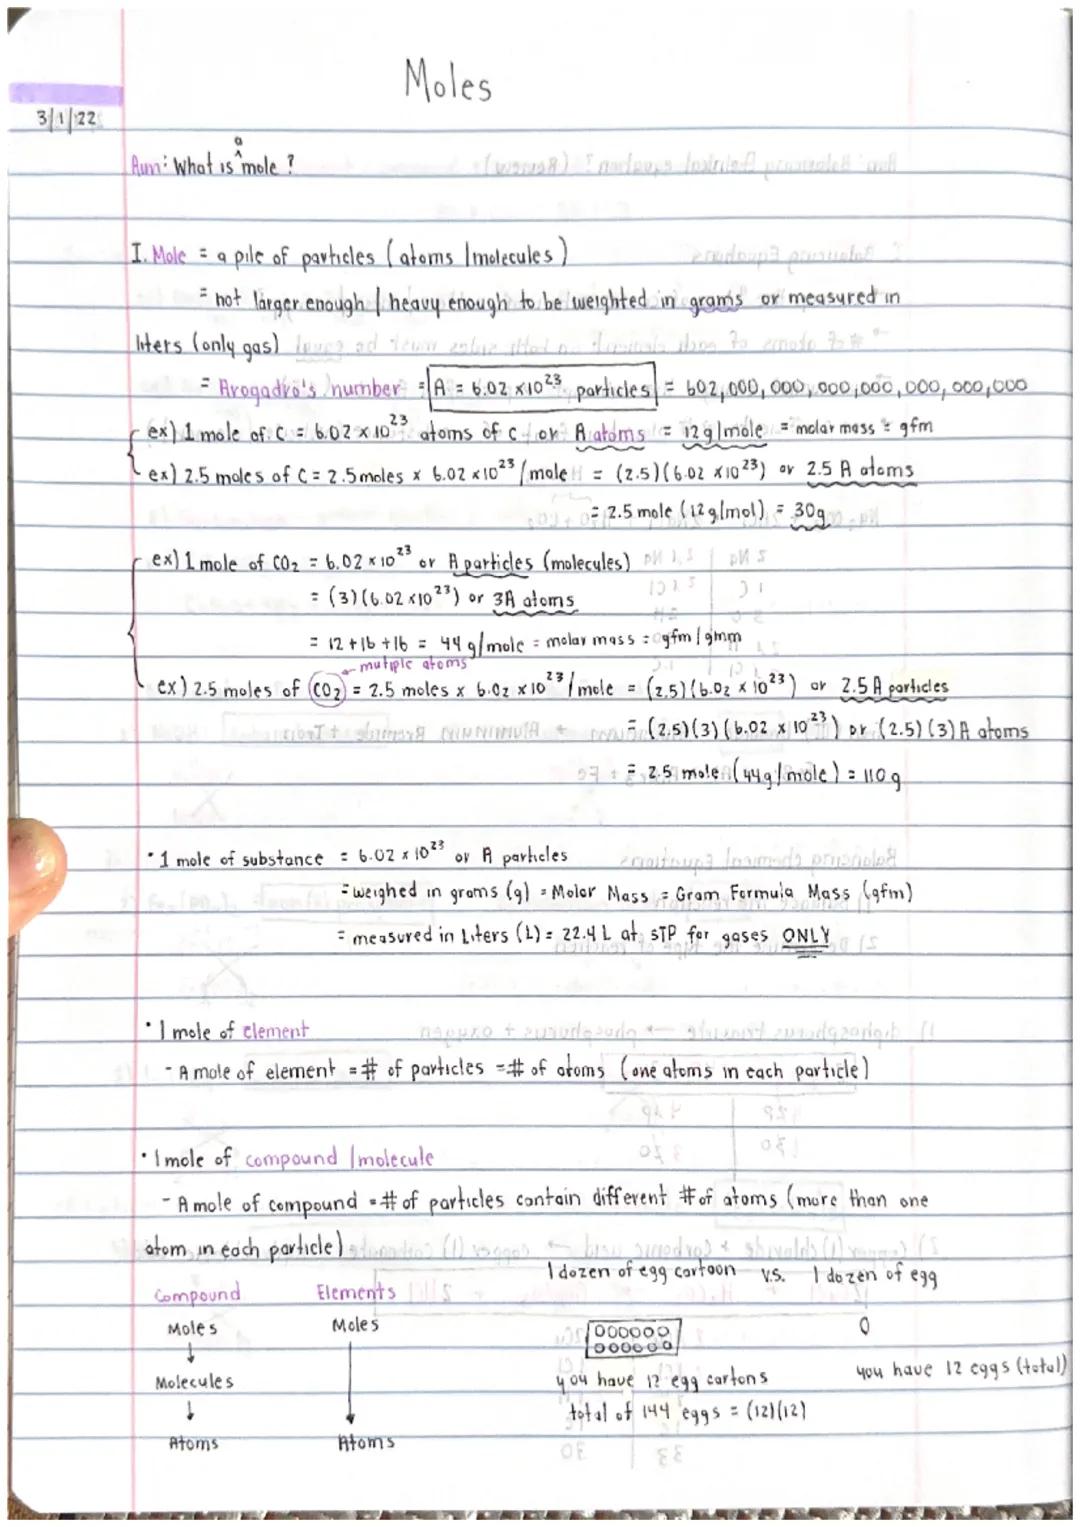 Moles
3/1/22
a
Aim: What is ^ mole ?
I. Mole = a pile of particles (atoms / molecules)
= not larger enough / heavy enough to be weighted in grams or measured in
liters (only gas)
= Avogadro's number = A = 6.02 x 10²³ particles = 602,000,000,000,000,000,000,000
ex) 1 mole of C = 6.02 x 10²³ atoms of C or A atoms = 12 g/mole = molar mass = gfm
ex) 2.5 moles of C = 2.5 moles x 6.02 x 10²³ /mole = (2.5)(6.02 x 10²³) or 2.5 A atoms
= 2.5 mole (12 g/mol) = 30g
ex) 1 mole of CO₂ = 6.02 x 10²³ or A particles (molecules)
= (3)(6.02 x 10²³) or 3A atoms
= 12 + 16 + 16 = 44 g/mole = molar mass = gfm / gmm
← mutiple atoms
ex) 2.5 moles of CO₂ = 2.5 moles x 6.02 x 10²³ /mole = (2.5)(6.02 x 10²³) or 2.5 A particles
= (2.5)(3)(6.02 x 10²³) or (2.5)(3) A atoms
= 2.5 mole (44g/mole) = 110 g
• 1 mole of substance = 6.02 x 10²³ or A particles
= weighed in grams (g) = Molar Mass = Gram Formula Mass (gfm)
= measured in Liters (L) = 22.4 L at STP for gases ONLY
• 1 mole of element
- A mole of element = # of particles = # of atoms (one atoms in each particle)
• 1 mole of compound / molecule
- A mole of compound = # of particles contain different # of atoms (more than one
atom in each particle)
1 dozen of egg cartoon v.s. 1 dozen of egg
Compound Elements
Moles Moles
↓
Molecules
you have 12 egg cartons you have 12 eggs (total)
total of 144 eggs = (12)(12)
↓ ↓
Atoms Atoms